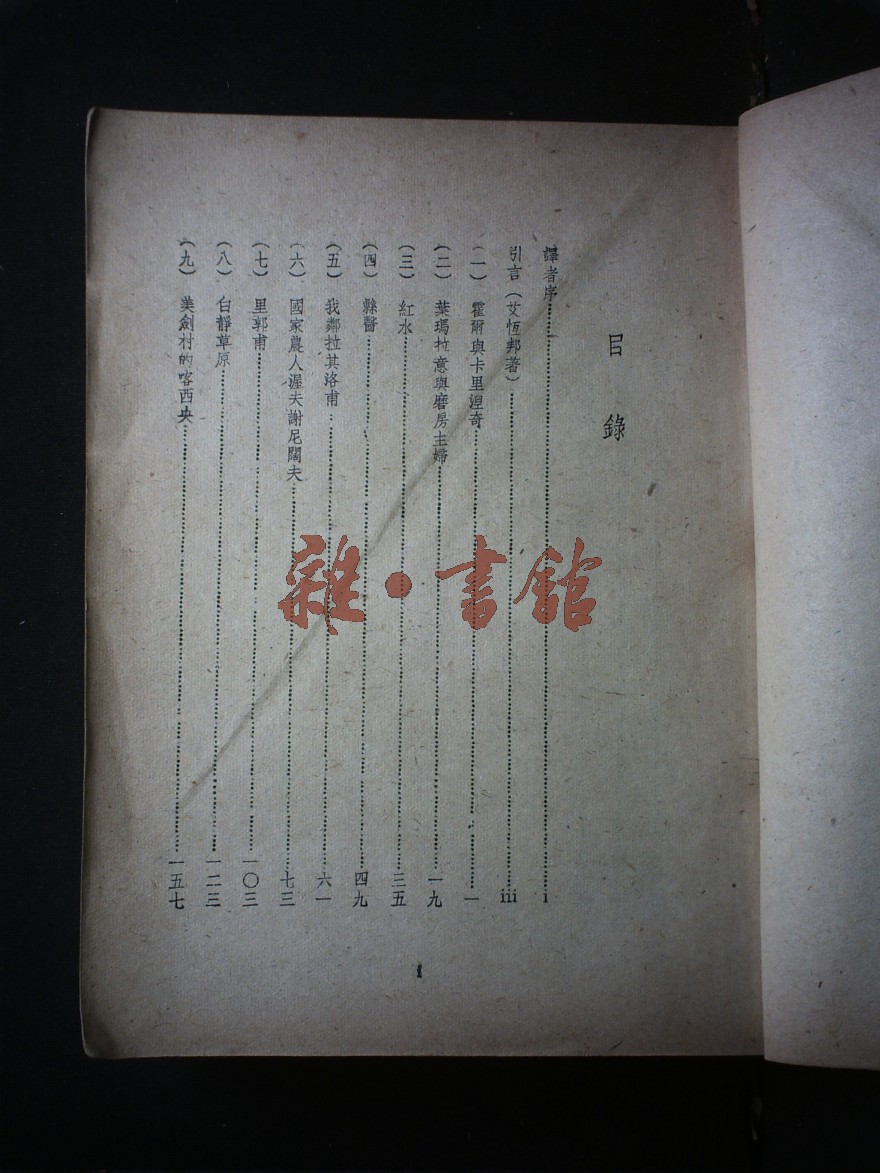 目錄
譯者序 i
引言(艾恆邦著) iii
(一) 霍爾與卡里湼奇 一
(二) 葉瑪拉意與磨房主婦 一九
(三) 紅水 三五
(四) 縣醫 四九
(五) 我鄰拉其洛甫 六一
(六) 國家農人渥夫謝尼闊夫 七三
(七) 里郭甫 一〇三
(八) 白靜草原 一二三
(九) 美劍村的喀西央 一五七
1
雜·書館